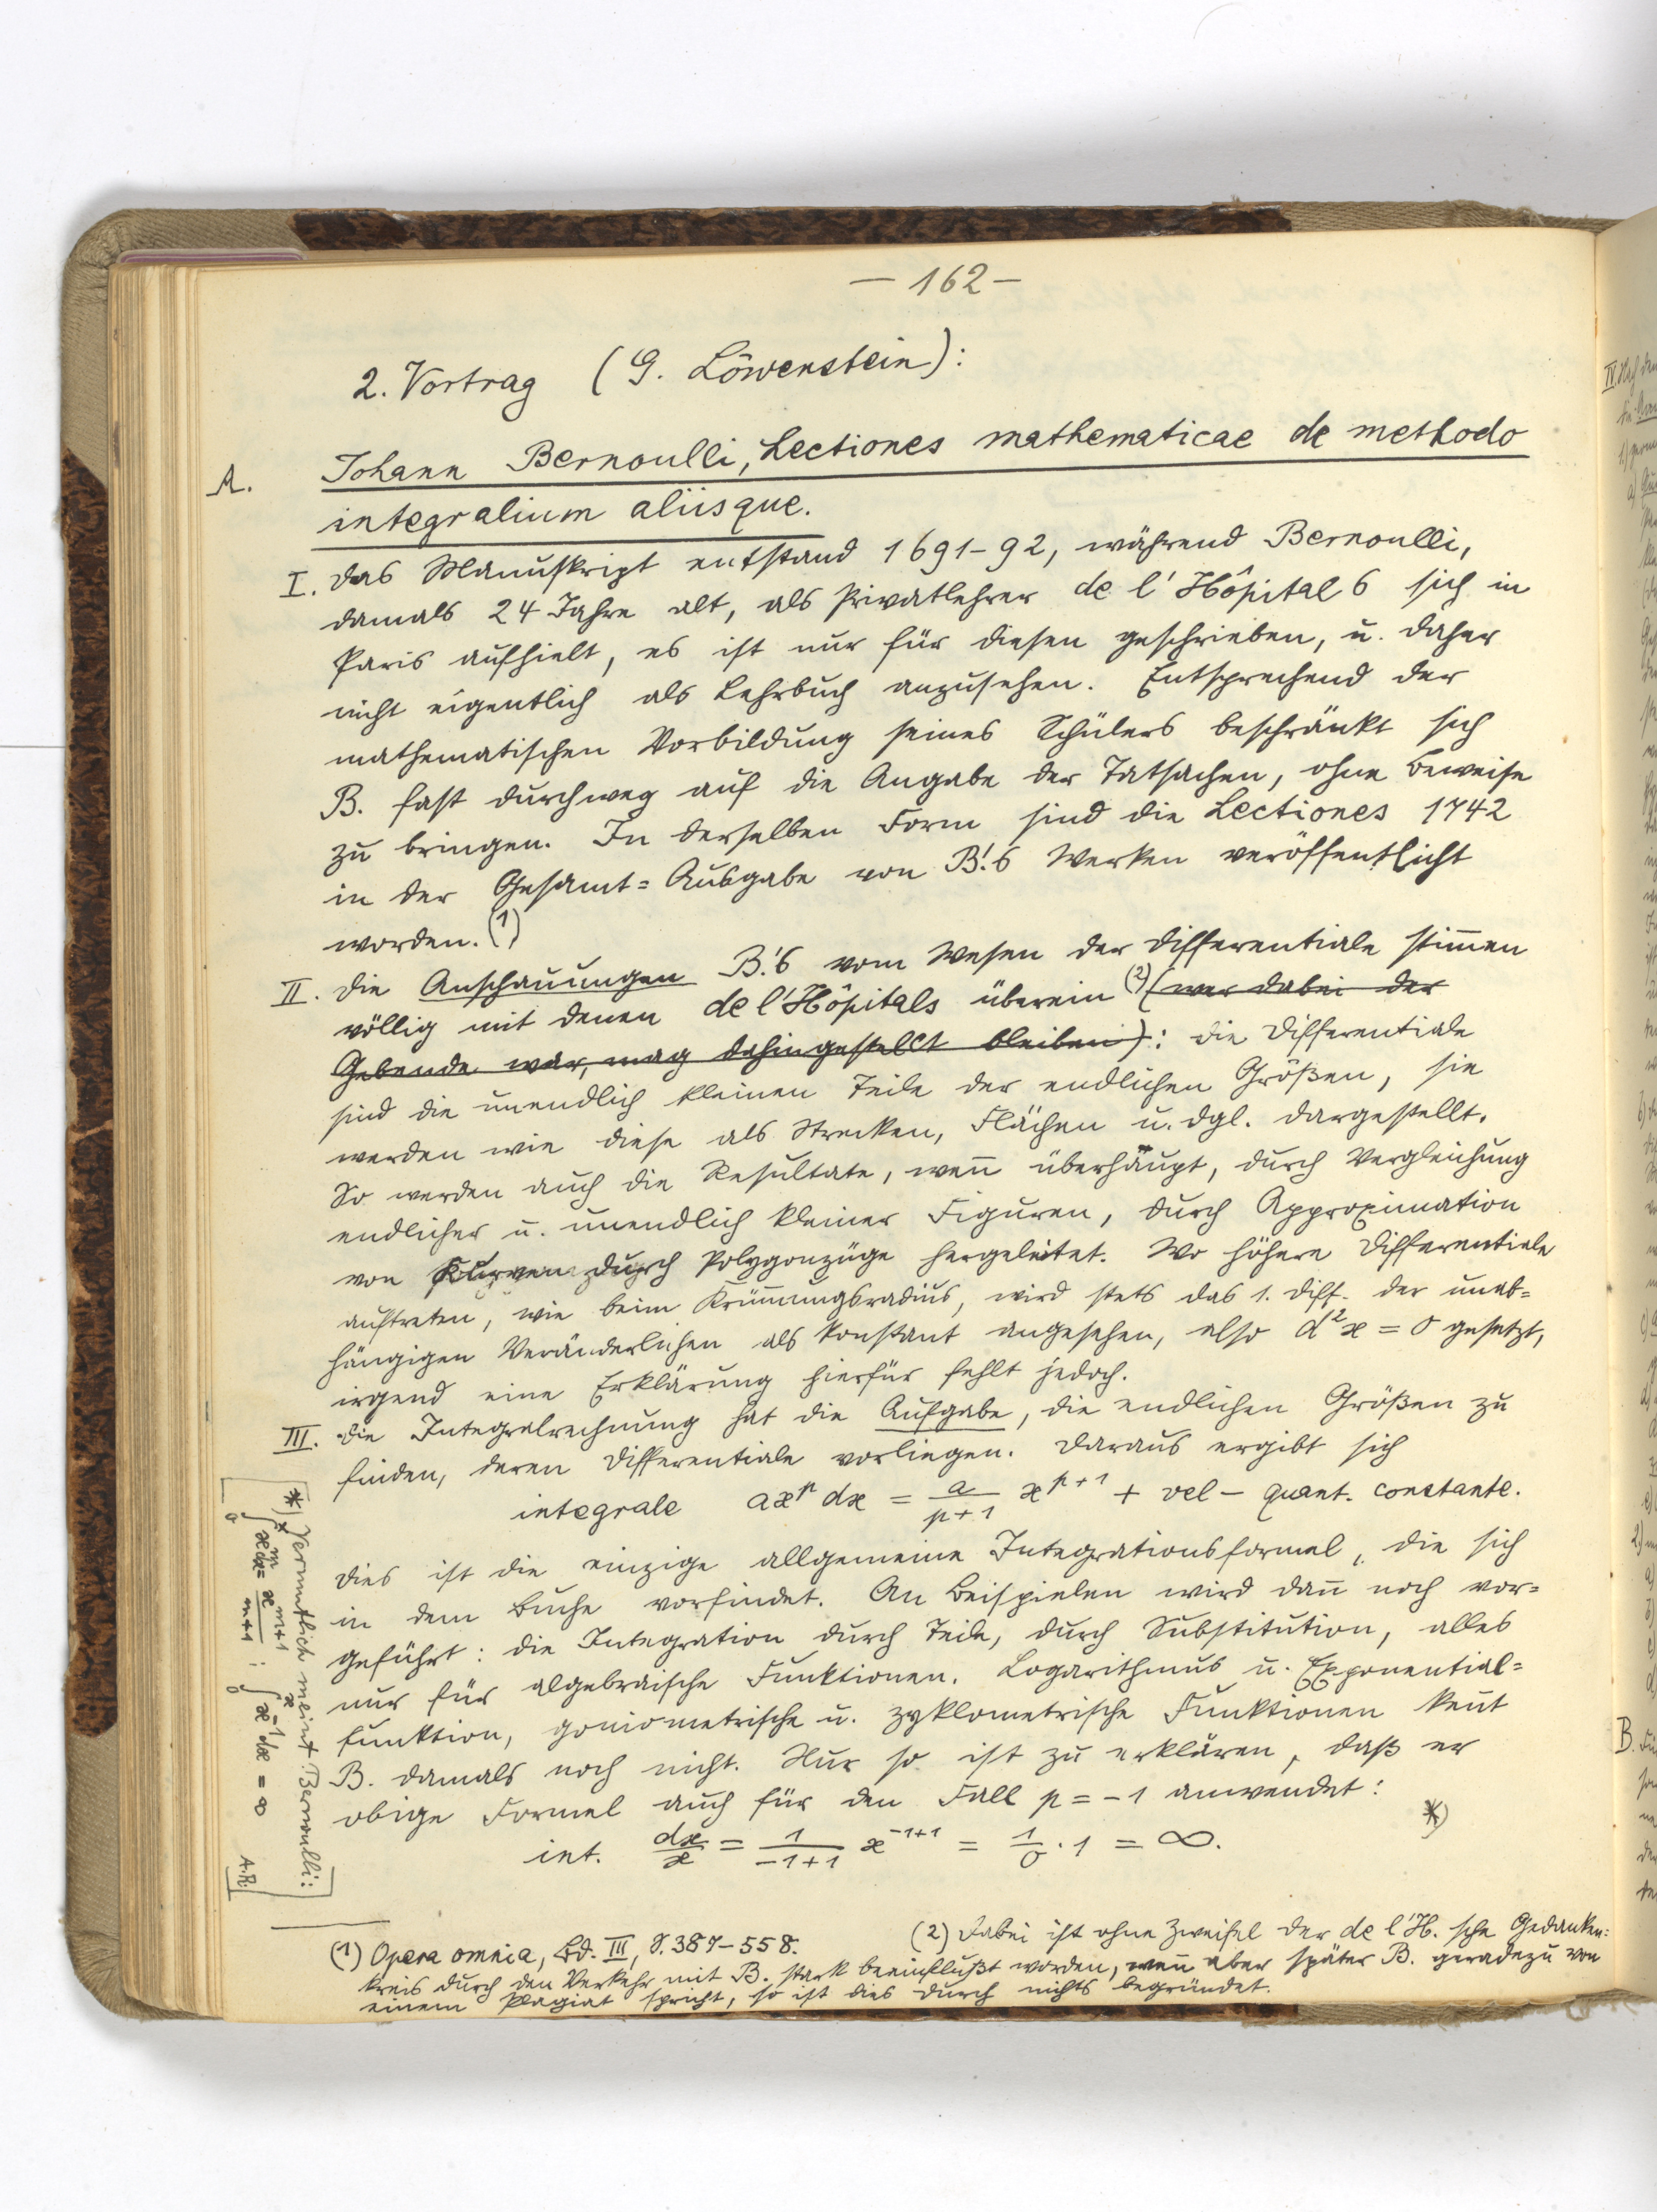 — 162 —
2. Vortrag (G. Löwenstein):
A. Johann Bernoulli, Lectiones mathematicae de methodo
integralium aliisque.
I. Das Manuskript entstand 1691-92, während Bernoulli,
damals 24 Jahre alt, als Privatlehrer de l'Hôpitals sich in
Paris aufhielt, es ist nur für diesen geschrieben, u. daher
nicht eigentlich als Lehrbuch anzusehen. Entsprechend der
mathematischen Vorbildung seines Schülers beschränkt sich
B. fast durchweg auf die Angabe der Tatsachen, ohne Beweise
zu bringen. In derselben Form sind die Lectiones 1742
in der Gesamt=Ausgabe von B.'s Werken veröffentlicht
worden. (1)
II. Die Anschauungen B.'s vom Wesen der Differentiale stimmen
völlig mit denen de l'Hôpitals überein (2) (wer dabei der
Gebende war, mag dahingestellt bleiben): die Differentiale
sind die unendlich kleinen Teile der endlichen Größen, sie
werden wie diese als Strecken, Flächen u. dgl. dargestellt.
So werden auch die Resultate, wenn überhaupt, durch Vergleichung
endlicher u. unendlich kleiner Figuren, durch Approximation
von Kurven durch Polygonzüge hergeleitet. Wo höhere Differentiale
auftreten, wie beim Krümmungsradius, wird stets das 1. Diff. der unab=
hängigen Veränderlichen als konstant angesehen, also d²x = 0 gesetzt,
irgend eine Erklärung hierfür fehlt jedoch.
III. Die Integralrechnung hat die Aufgabe, die endlichen Größen zu
finden, deren Differentiale vorliegen. Daraus ergibt sich
integrale ax^p dx = a/(p+1) x^(p+1) + vel − quant. constante.
Dies ist die einzige allgemeine Integrationsformel, die sich
in dem Buche vorfindet. An Beispielen wird dann noch vor=
geführt: die Integration durch Teile, durch Substitution, alles
nur für algebraische Funktionen. Logarithmus u. Exponential=
funktion, goniometrische u. zyklometrische Funktionen kennt
B. damals noch nicht. Nur so ist zu erklären, daß er
obige Formel auch für den Fall p = -1 anwendet:
int. dx/x = 1/(-1+1) x^(-1+1) = 1/0 · 1 = ∞. *)
[*) Vermutlich meint Bernoulli:
∫₀ˣ x^m dx = x^(m+1)/(m+1); ∫₀ˣ x^(-1) dx = ∞
A.R.]
(1) Opera omnia, Bd. III, S. 387-558. (2) Dabei ist ohne Zweifel der de l'H.sche Gedanken=
kreis durch den Verkehr mit B. stark beeinflußt worden, wenn aber später B. geradezu von
einem Plagiat spricht, so ist dies durch nichts begründet.